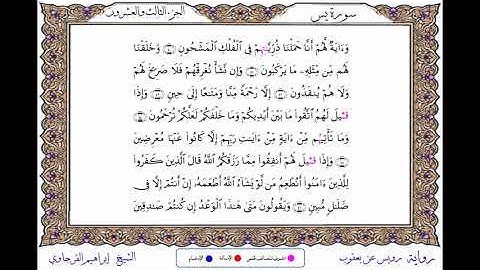 الجزء الثالث والعشرون
سورة يس
وَءَايَةٌ لَّهُمْ أَنَّا حَمَلْنَا ذُرِّيَّـٰتِهِمْ فِي ٱلْفُلْكِ ٱلْمَشْحُونِ وَخَلَقْنَا
لَهُم مِّن مِّثْلِهِۦ مَا يَرْكَبُونَ وَإِن نَّشَأْ نُغْرِقْهُمْ فَلَا صَرِيخَ لَهُمْ
وَلَا هُمْ يُنقَذُونَ إِلَّا رَحْمَةً مِّنَّا وَمَتَـٰعًا إِلَىٰ حِينٍ وَإِذَا
قِيلَ لَهُمُ ٱتَّقُوا۟ مَا بَيْنَ أَيْدِيكُمْ وَمَا خَلْفَكُمْ لَعَلَّكُمْ تُرْحَمُونَ
وَمَا تَأْتِيهُم مِّنْ ءَايَةٍ مِّنْ ءَايَـٰتِ رَبِّهِمْ إِلَّا كَانُوا۟ عَنْهَا مُعْرِضِينَ
وَإِذَا قِيلَ لَهُمْ أَنفِقُوا۟ مِمَّا رَزَقَكُمُ ٱللَّهُ قَالَ ٱلَّذِينَ كَفَرُوا۟
لِلَّذِينَ ءَامَنُوٓا۟ أَنُطْعِمُ مَن لَّوْ يَشَآءُ ٱللَّهُ أَطْعَمَهُۥٓ إِنْ أَنتُمْ إِلَّا فِي
ضَلَـٰلٍ مُّبِينٍ وَيَقُولُونَ مَتَىٰ هَـٰذَا ٱلْوَعْدُ إِن كُنتُمْ صَـٰدِقِينَ
رواية رويس عن يعقوب
الإمالة
الإدغام
الشيخ إبراهيم الفرجاوي